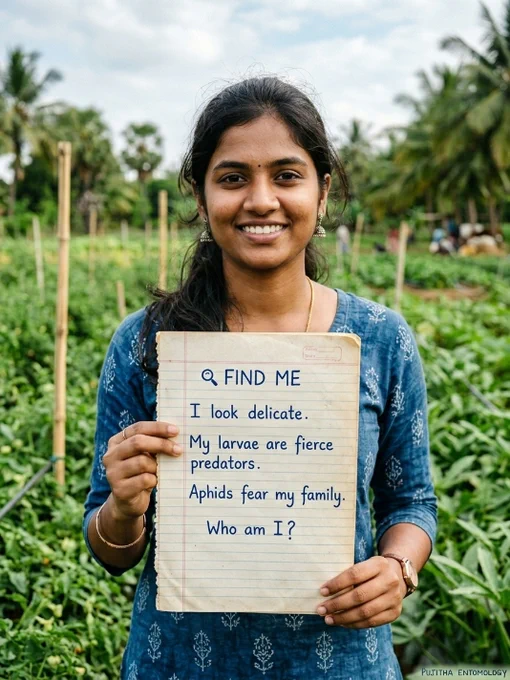 FIND ME
I look delicate.
My larvae are fierce
predators.
Aphids fear my family.
Who am I?
PUJITHA ENTOMOLOGY